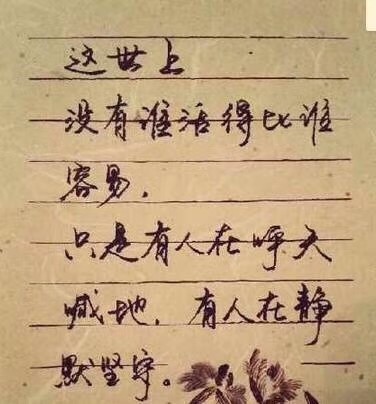 这世上
没有谁活得比谁
容易,
只是有人在呼天
喊地,有人在静
默坚守。